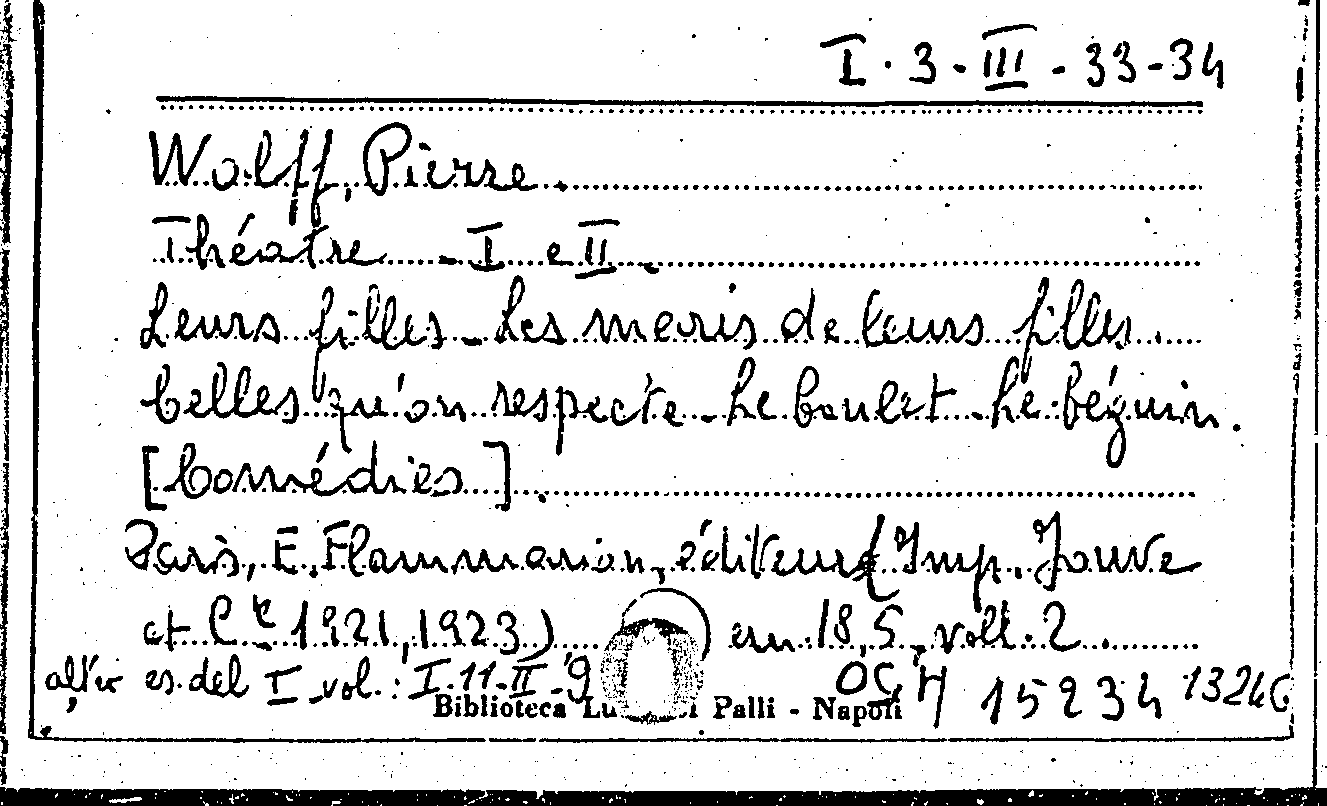 I·3-III-33-34
Wolff, Pierre.
Théatre - I e II.
Leurs filles - Les maris de leurs filles.
Celles qu'on respecte - Le boulet - Le béguin.
[Comédies].
Paris, E. Flammarion, éditeur (Imp. Jouve
et Cie 1921, 1923) cm. 18,5, voll. 2.
es. del I vol.: I-11-II-9
15234 13246
Biblioteca Palli - Napoli